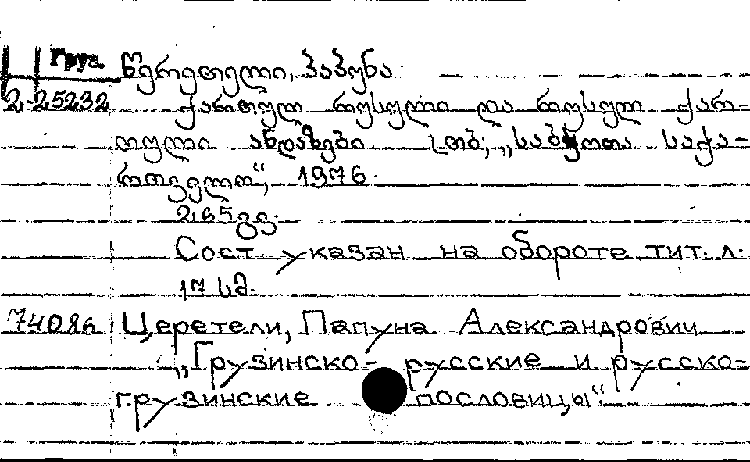 Груз. წერეთელი, პაპუნა
2-25232 ქართულ რუსული და რუსულ ქარ-
თული ანდაზები თბ., „საბჭოთა საქა-
რთველო“, 1976.
265 გვ.
Сост. указан на обороте тит. л.
17 სმ.
74086 Церетели, Папуна Александрович
„Грузинско-русские и русско-
грузинские пословицы“